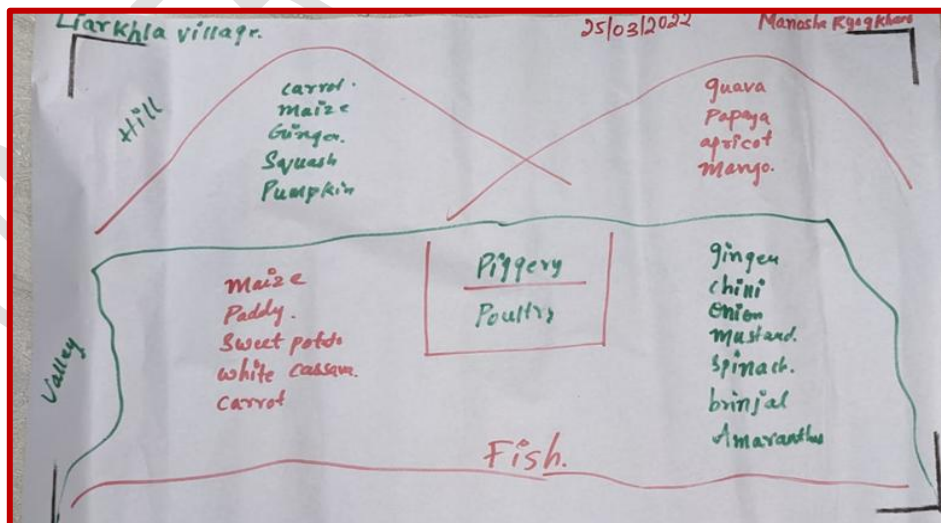 Liarkhla village.
25/03/2022
Manosha
Hill
carrot.
maize
Ginger.
Squash
Pumpkin
guava
Papaya
apricot
Mango.
Valley
maize
Paddy.
Sweet potato
white cassava.
carrot
Piggery
Poultry
ginger
chini
Onion
mustand.
Spinach.
brinjal
Amaranthus
Fish.